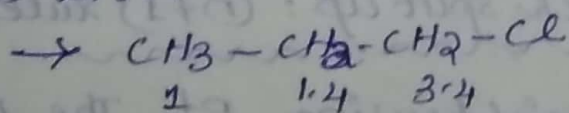 → CH3 - CH2 - CH2 - Cl
1 1.4 3.4